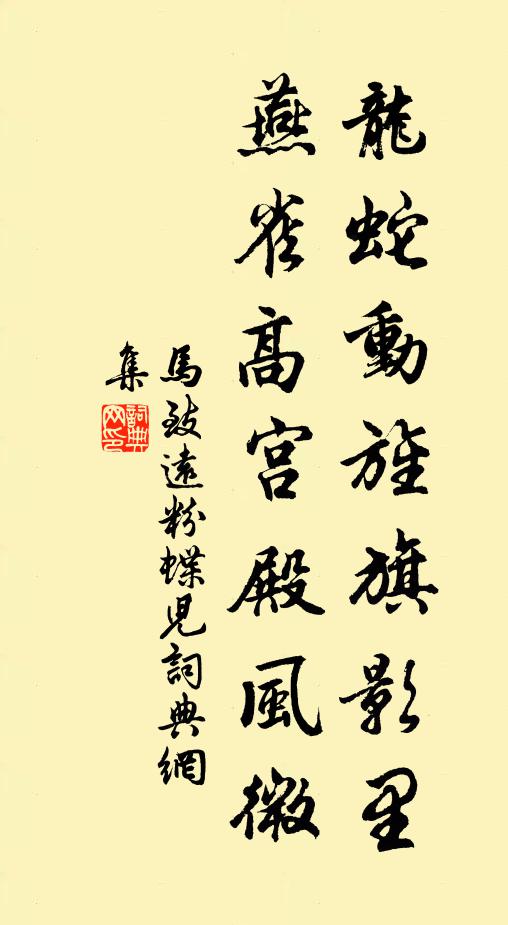 龍蛇動旌旗影里
燕雀高宮殿風微
馬致遠粉蝶兒詞典網
集
詞典網印